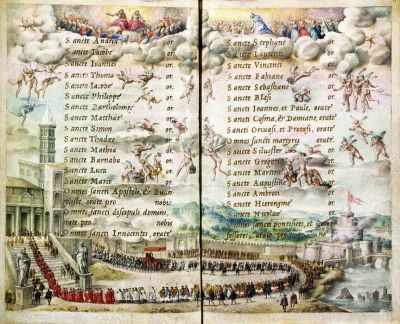 Sancte Andrea or.
Sancte Jacobe or.
Sancte Ioannes or.
Sancte Thoma or.
Sancte Iacobe or.
Sancte Philippe or.
Sancte Bartholomee or.
Sancte Matthaee or.
Sancte Simon or.
Sancte Thadaee or.
Sancte Mathia or.
Sancte Barnaba or.
Sancte Luca or.
Sancte Marce or.
Omnes sancti Apostoli, & Euan
gelistae, orate pro nobis
Omnes sancti discipuli domini,
orate pro nobis
Omnes sancti Innocentes, orate
Sancte Stephane or.
Sancte Laurenti or.
Sancte Vincenti or.
Sancte Fabiane or.
Sancte Sebastiane or.
Sancte Blasi or.
Sancti Ioannes, et Paule, orate
Sancti Cosma, & Damiane, orate
Sancti Geruasi, et Protasi, orate
Omnes sancti martyres orate
Sancte Siluester or.
Sancte Gregori or.
Sancte Martine or.
Sancte Augustine or.
Sancte Ambrosi or.
Sancte Hieronyme or.
Sancte Nicolae or.
Omnes sancti pontifices, et Con
fessores, orate pro